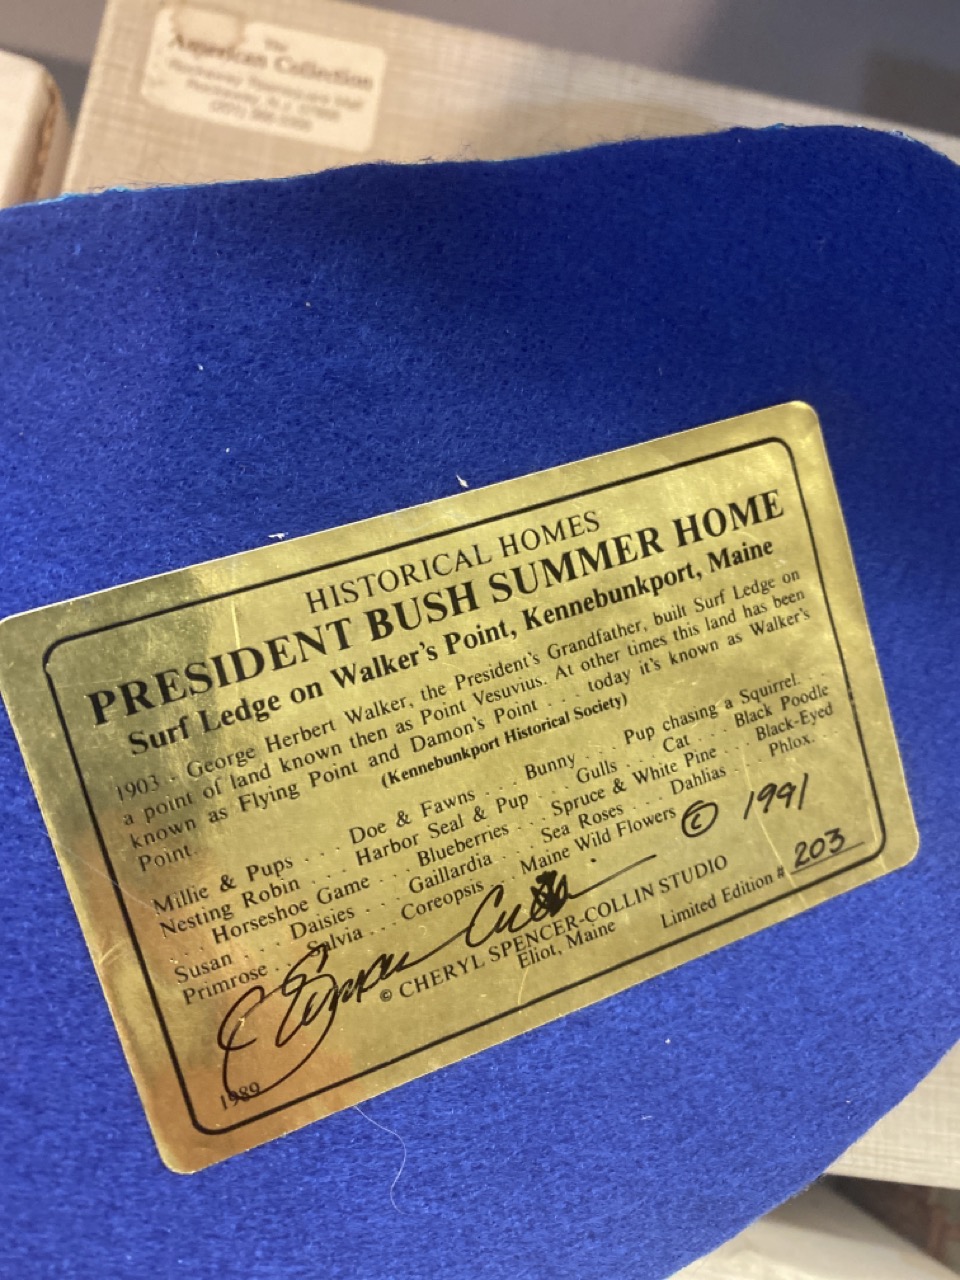 The
American Collection
HISTORICAL HOMES
PRESIDENT BUSH SUMMER HOME
Surf Ledge on Walker's Point, Kennebunkport, Maine
1903 - George Herbert Walker, the President's Grandfather, built Surf Ledge on
a point of land known then as Point Vesuvius. At other times this land has been
known as Flying Point and Damon's Point . . . today it's known as Walker's
Point. (Kennebunkport Historical Society)
Millie & Pups . . . Doe & Fawns . . . Bunny . . . Pup chasing a Squirrel. . .
Nesting Robin . . . Harbor Seal & Pup . . . Gulls . . . Cat . . . Black Poodle
. . . Horseshoe Game . . . Blueberries . . . Spruce & White Pine . . . Black-Eyed
Susan . . . Daisies . . . Gaillardia . . . Sea Roses . . . Dahlias . . . Phlox. . .
Primrose . . . Salvia . . . Coreopsis . . . Maine Wild Flowers © 1991
C Spencer Collin
© CHERYL SPENCER-COLLIN STUDIO
Eliot, Maine
Limited Edition # 203
1989